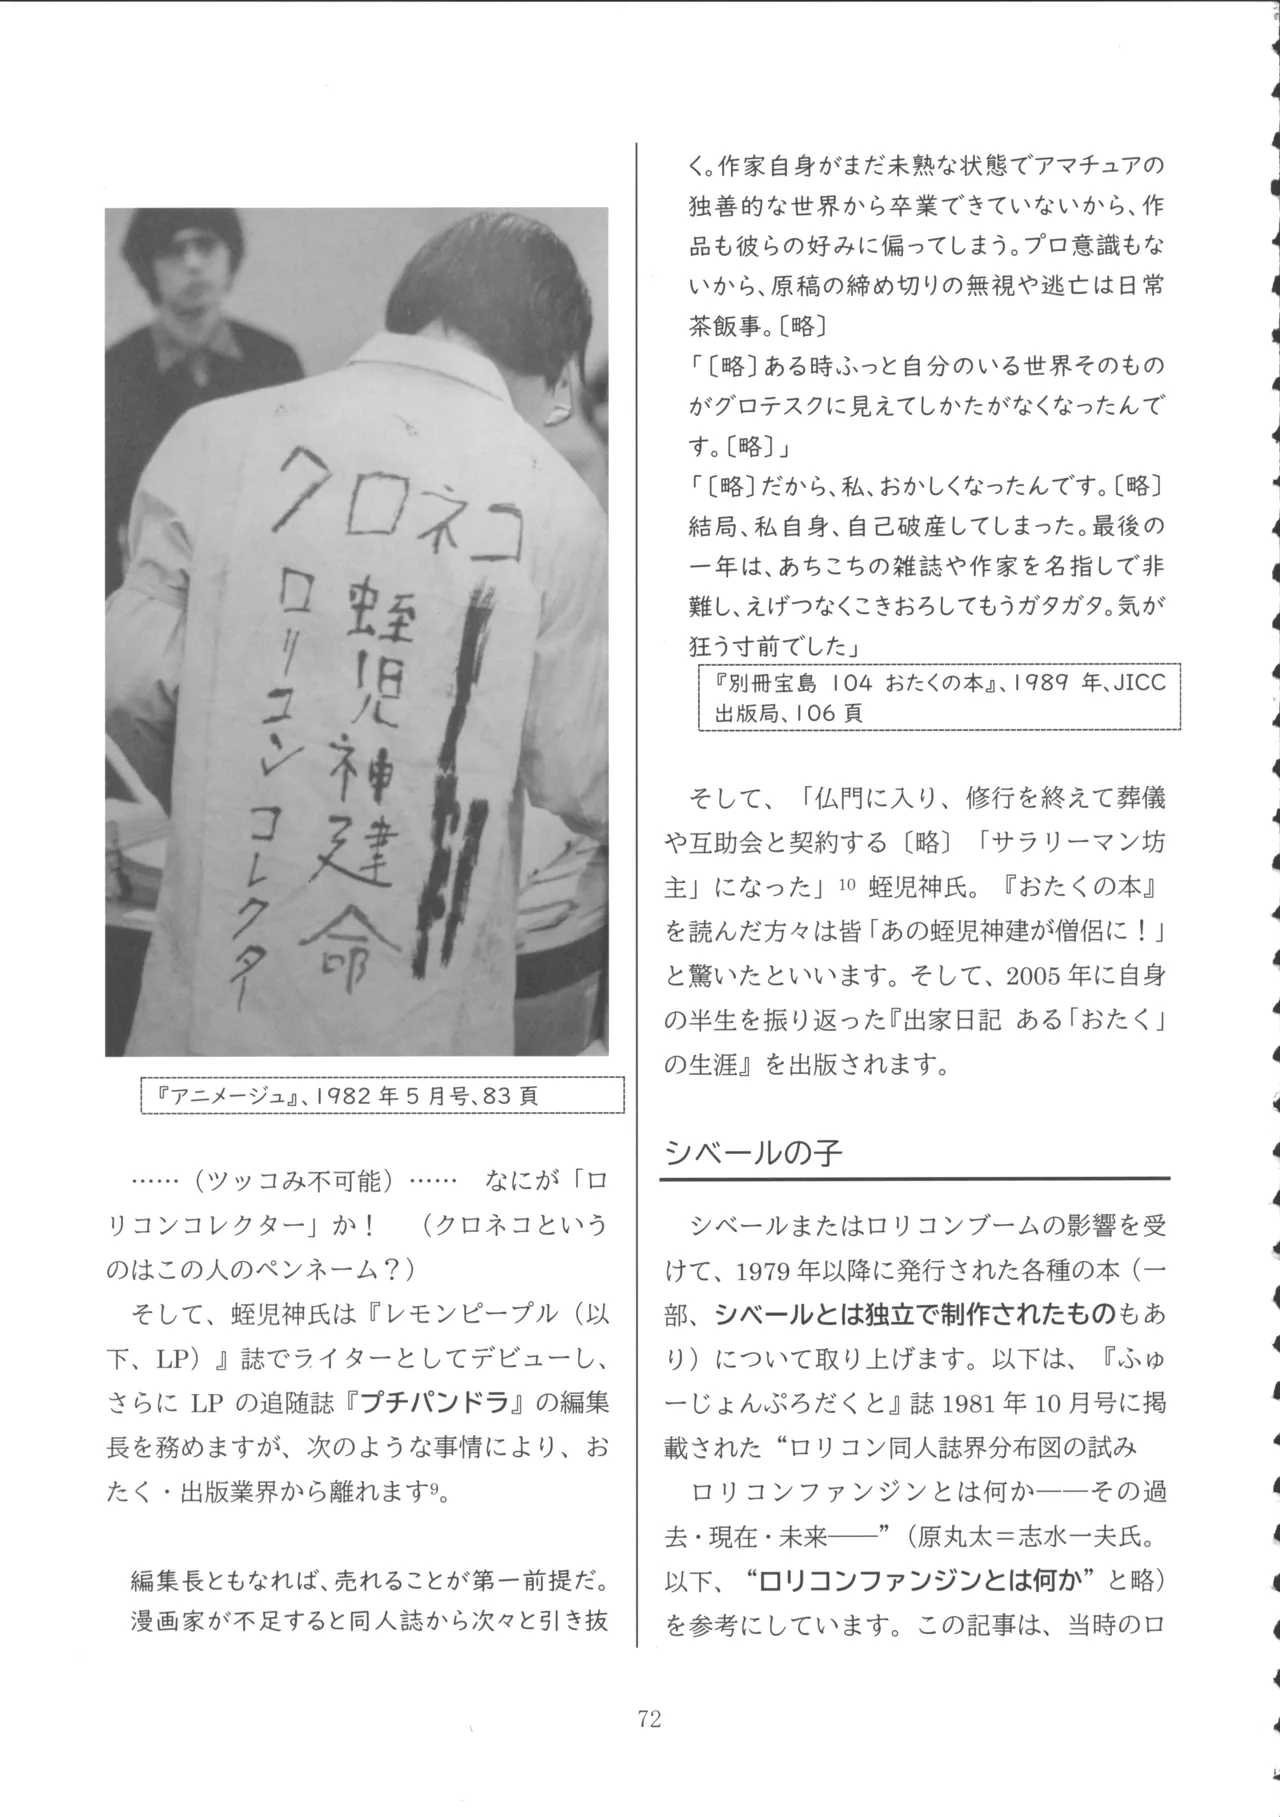 クロネコ
蛭児神建命
ロリコンコレクター
『アニメージュ』、1982年5月号、83頁
……（ツッコみ不可能）…… なにが「ロ
リコンコレクター」か！ （クロネコという
のはこの人のペンネーム？）
そして、蛭児神氏は『レモンピープル（以
下、LP）』誌でライターとしてデビューし、
さらに LP の追随誌『プチパンドラ』の編集
長を務めますが、次のような事情により、お
たく・出版業界から離れます⁹。
編集長ともなれば、売れることが第一前提だ。
漫画家が不足すると同人誌から次々と引き抜
く。作家自身がまだ未熟な状態でアマチュアの
独善的な世界から卒業できていないから、作
品も彼らの好みに偏ってしまう。プロ意識もな
いから、原稿の締め切りの無視や逃亡は日常
茶飯事。〔略〕
「〔略〕ある時ふっと自分のいる世界そのもの
がグロテスクに見えてしかたがなくなったんで
す。〔略〕」
「〔略〕だから、私、おかしくなったんです。〔略〕
結局、私自身、自己破産してしまった。最後の
一年は、あちこちの雑誌や作家を名指しで非
難し、えげつなくこきおろしてもうガタガタ。気が
狂う寸前でした」
『別冊宝島 104 おたくの本』、1989 年、JICC
出版局、106頁
そして、「仏門に入り、修行を終えて葬儀
や互助会と契約する〔略〕「サラリーマン坊
主」になった」¹⁰ 蛭児神氏。『おたくの本』
を読んだ方々は皆「あの蛭児神建が僧侶に！」
と驚いたといいます。そして、2005 年に自身
の半生を振り返った『出家日記 ある「おたく」
の生涯』を出版されます。
シベールの子
シベールまたはロリコンブームの影響を受
けて、1979 年以降に発行された各種の本（一
部、シベールとは独立で制作されたものもあ
り）について取り上げます。以下は、『ふゅ
ーじょんぷろだくと』誌 1981 年 10 月号に掲
載された“ロリコン同人誌界分布図の試み
ロリコンファンジンとは何か――その過
去・現在・未来――”（原丸太＝志水一夫氏。
以下、“ロリコンファンジンとは何か”と略）
を参考にしています。この記事は、当時のロ
72